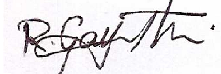 R. Gayathri